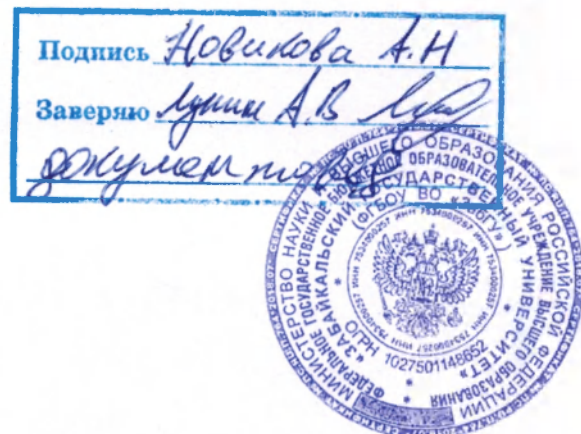 Подпись Новикова А.Н
Заверяю Лунин А.В
документовед
МИНИСТЕРСТВО НАУКИ И ВЫСШЕГО ОБРАЗОВАНИЯ РОССИЙСКОЙ ФЕДЕРАЦИИ
ФЕДЕРАЛЬНОЕ ГОСУДАРСТВЕННОЕ БЮДЖЕТНОЕ ОБРАЗОВАТЕЛЬНОЕ УЧРЕЖДЕНИЕ ВЫСШЕГО ОБРАЗОВАНИЯ
«ЗАБАЙКАЛЬСКИЙ ГОСУДАРСТВЕННЫЙ УНИВЕРСИТЕТ»
(ФГБОУ ВО «ЗабГУ»)
ОГРН 1027501148652